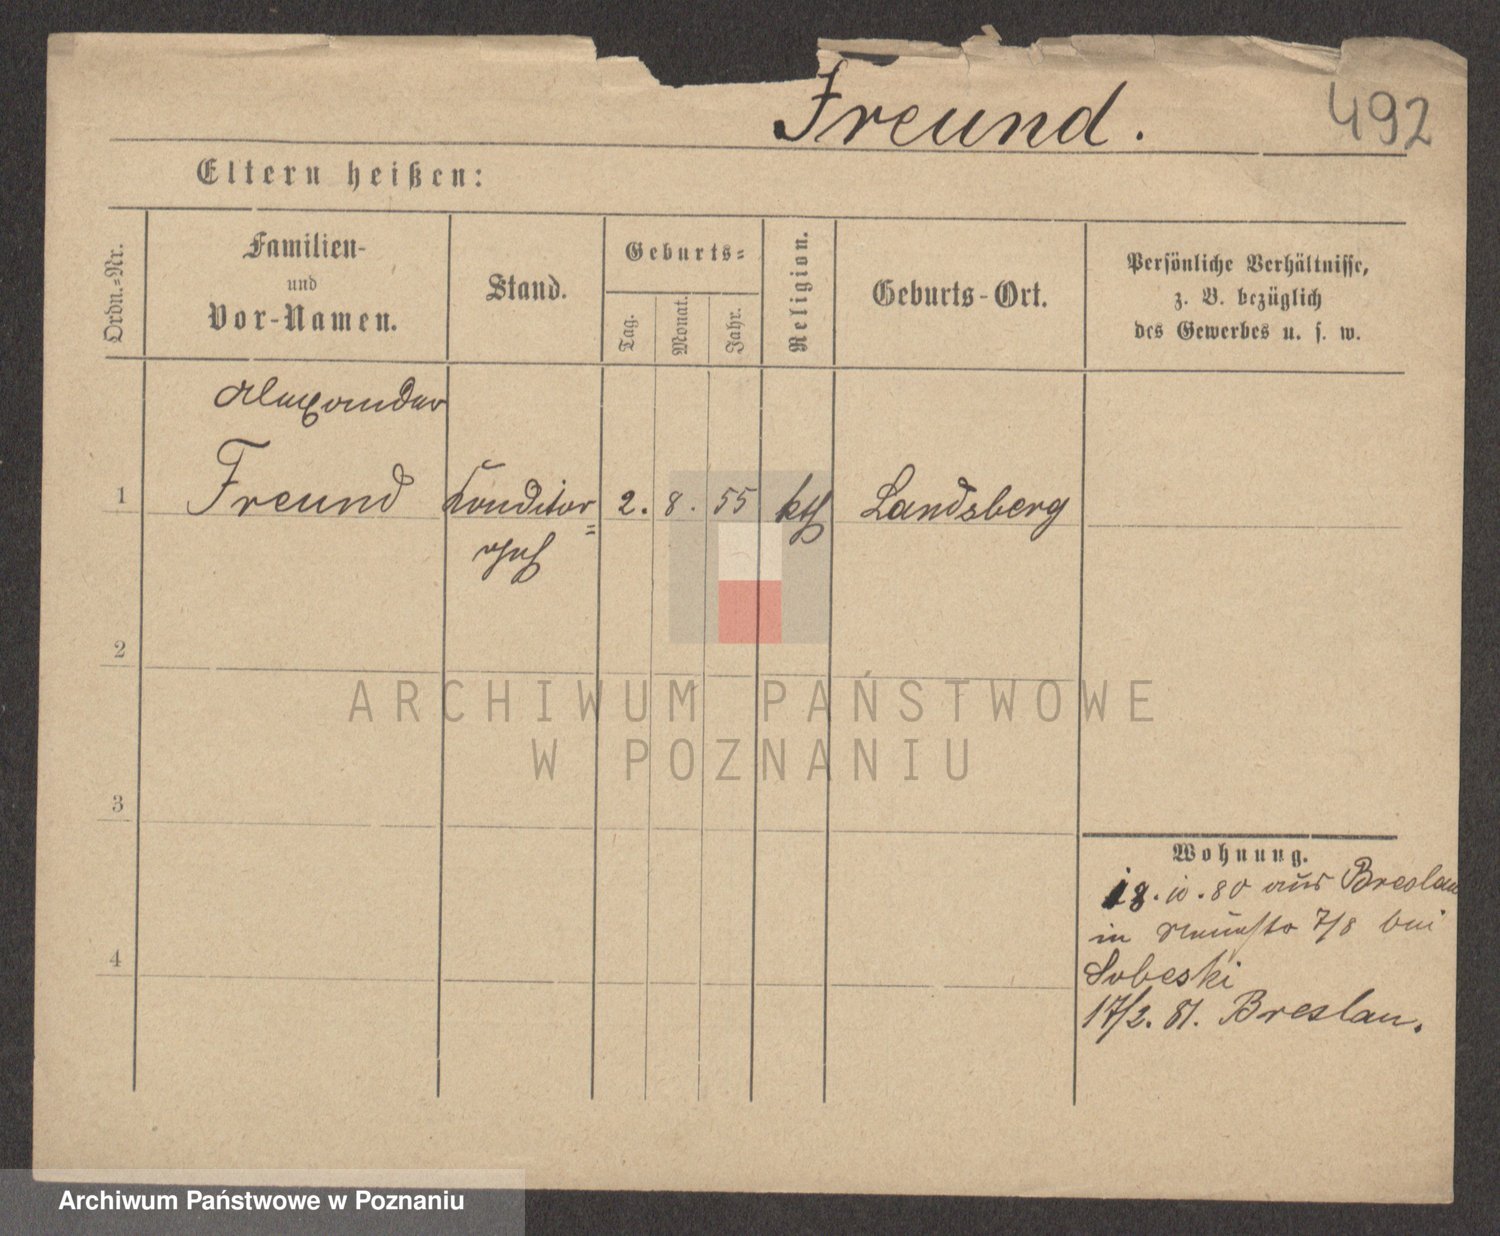 Freund.
492
Eltern heißen:
Ordn.-Nr.
Familien-
und
Vor-Namen.
Stand.
Geburts-
Tag.
Monat.
Jahr.
Religion.
Geburts-Ort.
Persönliche Verhältnisse,
z. B. bezüglich
des Gewerbes u. s. w.
Alexander
1 Freund Conditor 2. 8. 55 kth Landsberg
2
ARCHIWUM PAŃSTWOWE
W POZNANIU
3
Wohnung.
18.10.80 aus Breslau
in 7/8 bei
Sobeski
4
17/2. 81. Breslau.
Archiwum Państwowe w Poznaniu